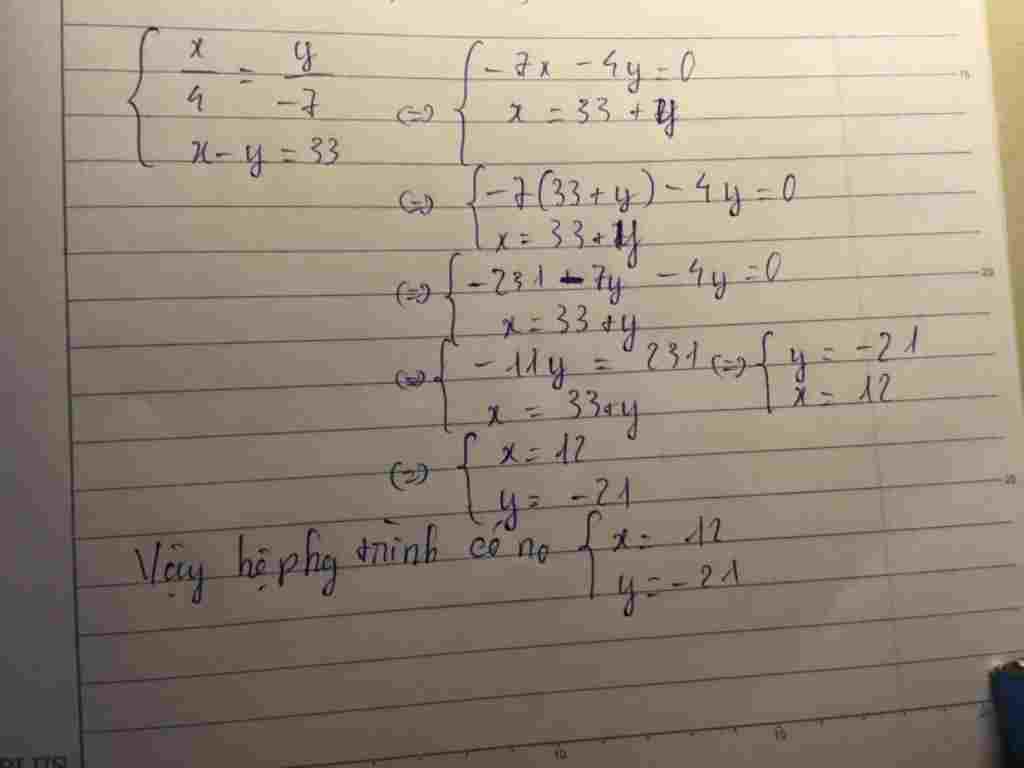 x/4 = y/-7 (=) -7x - 4y = 0
x - y = 33 x = 33 + y
(=) -7(33 + y) - 4y = 0
x = 33 + y
(=) -231 - 7y - 4y = 0
x = 33 + y
(=) -11y = 231 (=) y = -21
x = 33 + y x = 12
(=) x = 12
y = -21
Vậy hệ phg trình có no x = 12
y = -21